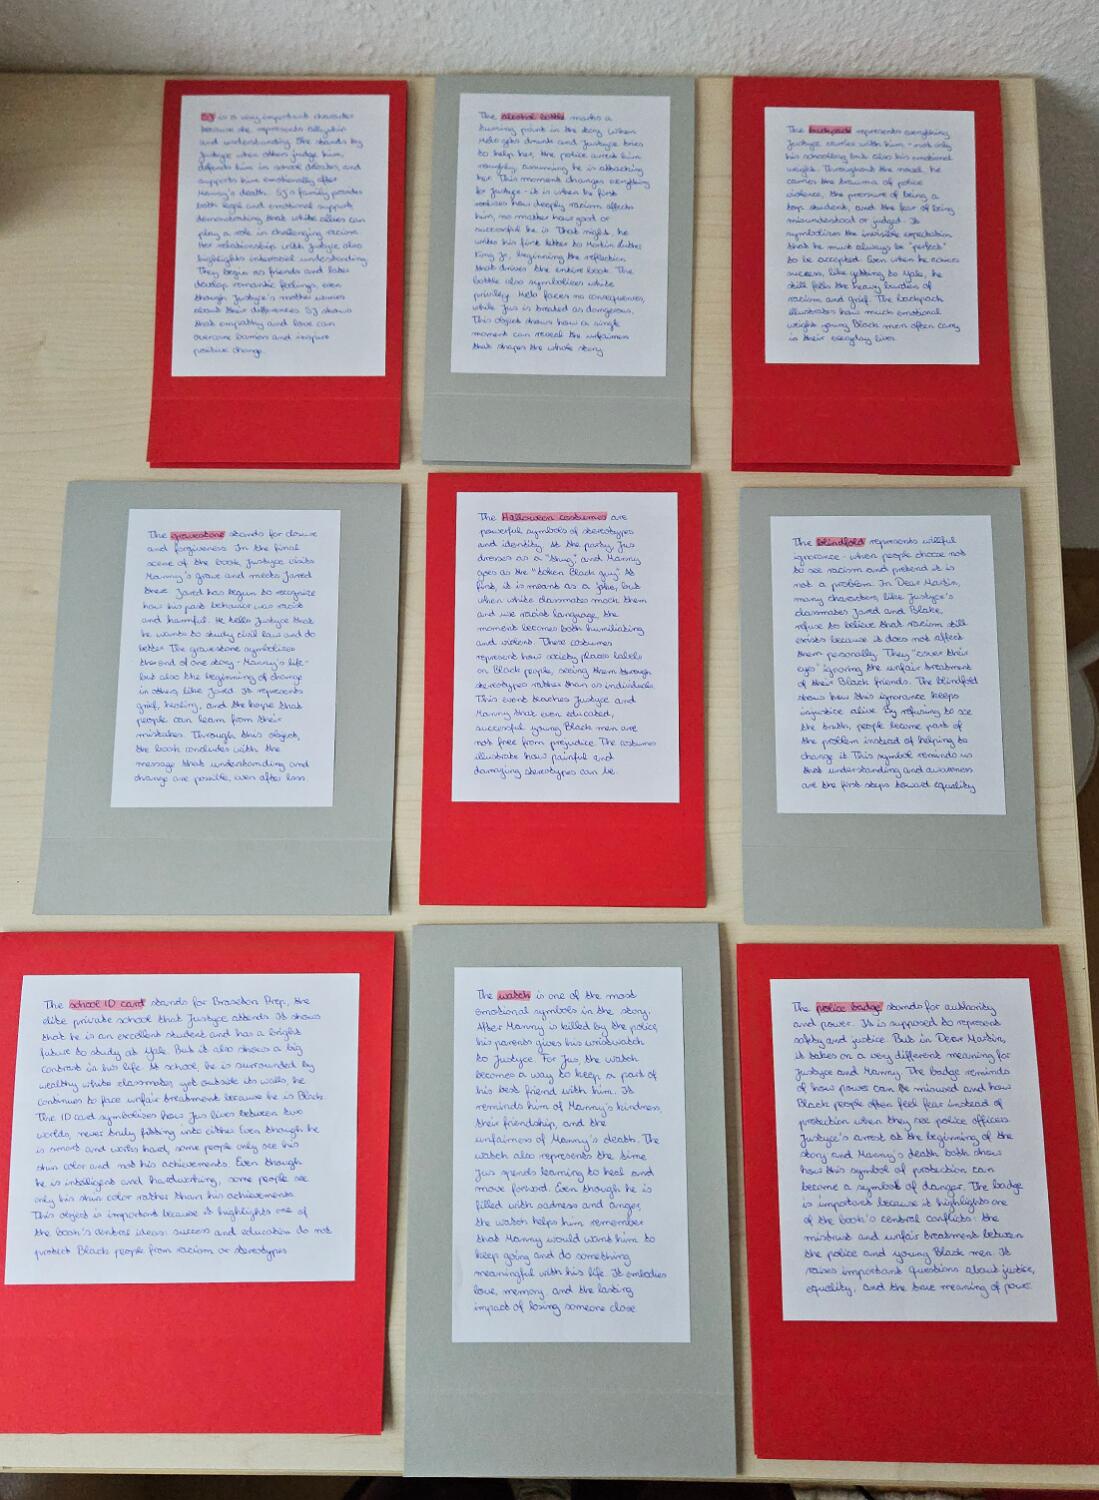 SJ is a very important character
because she represents allyship
and understanding. She stands by
Justyce when others judge him,
defends him in school debates, and
supports him emotionally after
Manny's death. SJ's family provides
both legal and emotional support,
demonstrating that white allies can
play a role in challenging racism.
Her relationship with Justyce also
highlights interracial understanding.
They begin as friends and later
develop romantic feelings, even
though Justyce's mother worries
about their differences. SJ shows
that empathy and love can
overcome barriers and inspire
positive change.
The alcohol bottle marks a
turning point in the story. When
Melo gets drunk and Justyce tries
to help her, the police arrest him
roughly, assuming he is attacking
her. This moment changes everything
for Justyce - it is when he first
realises how deeply racism affects
him, no matter how good or
successful he is. That night, he
writes his first letter to Martin Luther
King Jr., beginning the reflection
that drives the entire book. The
bottle also symbolizes white
privilege. Melo faces no consequences,
while Jus is treated as dangerous.
This object shows how a single
moment can reveal the unfairness
that shapes the whole story
The backpack represents everything
Justyce carries with him - not only
his schoolbag but also his emotional
weight. Throughout the novel, he
carries the trauma of police
violence, the pressure of being a
top student, and the fear of being
misunderstood or judged. It
symbolizes the invisible expectation
that he must always be "perfect"
to be accepted. Even when he earns
success, like getting to Yale, he
still feels the heavy burden of
racism and grief. The backpack
illustrates how much emotional
weight young Black men often carry
in their everyday lives.
The gravestone stands for closure
and forgiveness. In the final
scene of the book, Justyce visits
Manny's grave and meets Jared
there. Jared has begun to recognize
how his past behavior was racist
and harmful. He tells Justyce that
he wants to study civil law and do
better. The gravestone symbolizes
the end of one story - Manny's life -
but also the beginning of change
in others, like Jared. It represents
grief, healing, and the hope that
people can learn from their
mistakes. Through this object,
the book concludes with the
message that understanding and
change are possible, even after loss.
The Halloween costumes are
powerful symbols of stereotypes
and identity. At the party, Jus
dresses as a "thug," and Manny
goes as the "token Black guy." At
first, it is meant as a joke, but
when white classmates mock them
and use racist language, the
moment becomes both humiliating
and violent. These costumes
represent how society places labels
on Black people, seeing them through
stereotypes rather than as individuals.
This event teaches Justyce and
Manny that even educated,
successful young Black men are
not free from prejudice. The costumes
illustrate how painful and
damaging stereotypes can be.
The blindfold represents willful
ignorance - when people choose not
to see racism and pretend it is
not a problem. In Dear Martin,
many characters, like Justyce's
classmates Jared and Blake,
refuse to believe that racism still
exists because it does not affect
them personally. They "cover their
eyes" ignoring the unfair treatment
of their Black friends. The blindfold
shows how this ignorance keeps
injustice alive. By refusing to see
the truth, people become part of
the problem instead of helping to
change it. This symbol reminds us
that understanding and awareness
are the first steps toward equality
The school ID card stands for Braselton Prep, the
elite private school that Justyce attends. It shows
that he is an excellent student and has a bright
future to study at Yale. But it also shows a big
contrast in his life. At school, he is surrounded by
wealthy white classmates, yet outside its walls, he
continues to face unfair treatment because he is Black.
The ID card symbolizes how Jus lives between two
worlds, never truly fitting into either. Even though he
is smart and works hard, some people only see his
skin color and not his achievements. Even though
he is intelligent and hardworking, some people see
only his skin color rather than his achievements
This object is important because it highlights one of
the book's central ideas: success and education do not
protect Black people from racism or stereotypes
The watch is one of the most
emotional symbols in the story.
After Manny is killed by the police,
his parents gives his wristwatch
to Justyce. For Jus, the watch
becomes a way to keep a part of
his best friend with him. It
reminds him of Manny's kindness,
their friendship, and the
unfairness of Manny's death. The
watch also represents the time
Jus spends learning to heal and
move forward. Even though he is
filled with sadness and anger,
the watch helps him remember
that Manny would want him to
keep going and do something
meaningful with his life. It embodies
love, memory, and the lasting
impact of losing someone close
The police badge stands for authority
and power. It is supposed to represent
safety and justice. But in Dear Martin,
it takes on a very different meaning for
Justyce and Manny. The badge reminds
of how power can be misused and how
Black people often feel fear instead of
protection when they see police officers.
Justyce's arrest at the beginning of the
story and Manny's death both show
how this symbol of protection can
become a symbol of danger. The badge
is important because it highlights one
of the book's central conflicts: the
mistrust and unfair treatment between
the police and young Black men. It
raises important questions about justice,
equality, and the true meaning of power.